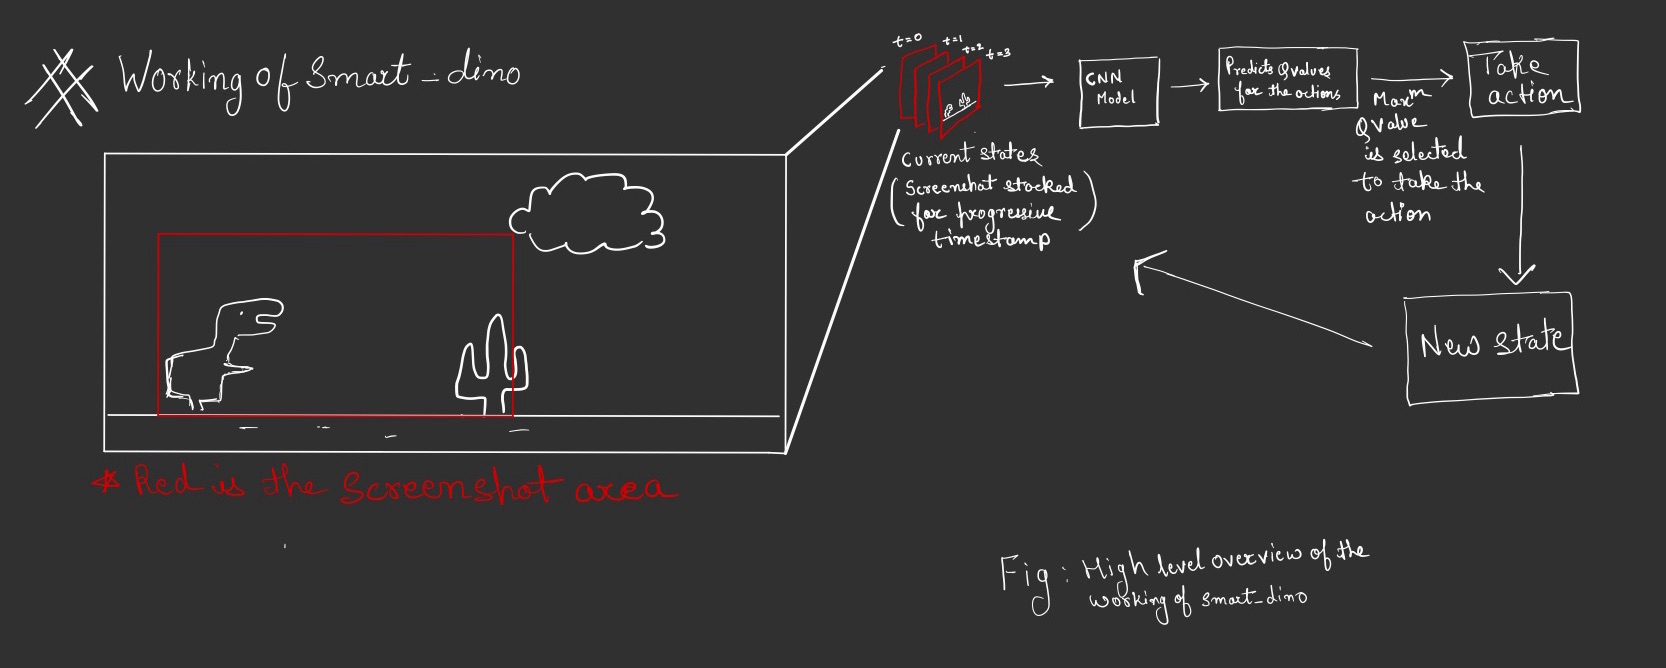 Working of Smart-dino
* Red is the screenshot area
t=0
t=1
t=2
t=3
Current states
(Screenshot stacked
for progressive
timestamp)
CNN
Model
Predicts Qvalues
for the actions
Maxm
Qvalue
is selected
to take the
action
Take
action
New state
Fig: High level overview of the
working of smart-dino